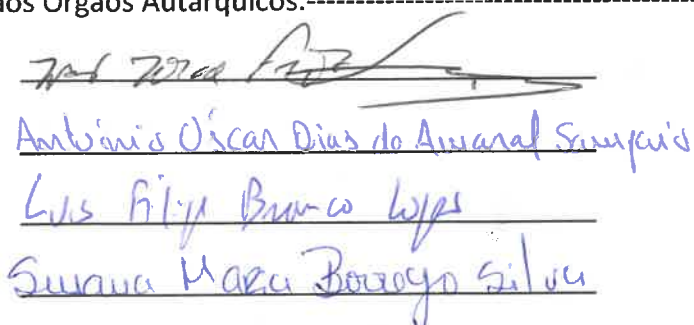 aos Órgãos Autárquicos.----------------------------------------
António Óscar Dias do Amaral Sampaio
Luis Filipe Branco Lopes
Susana Maria Borrego Silva